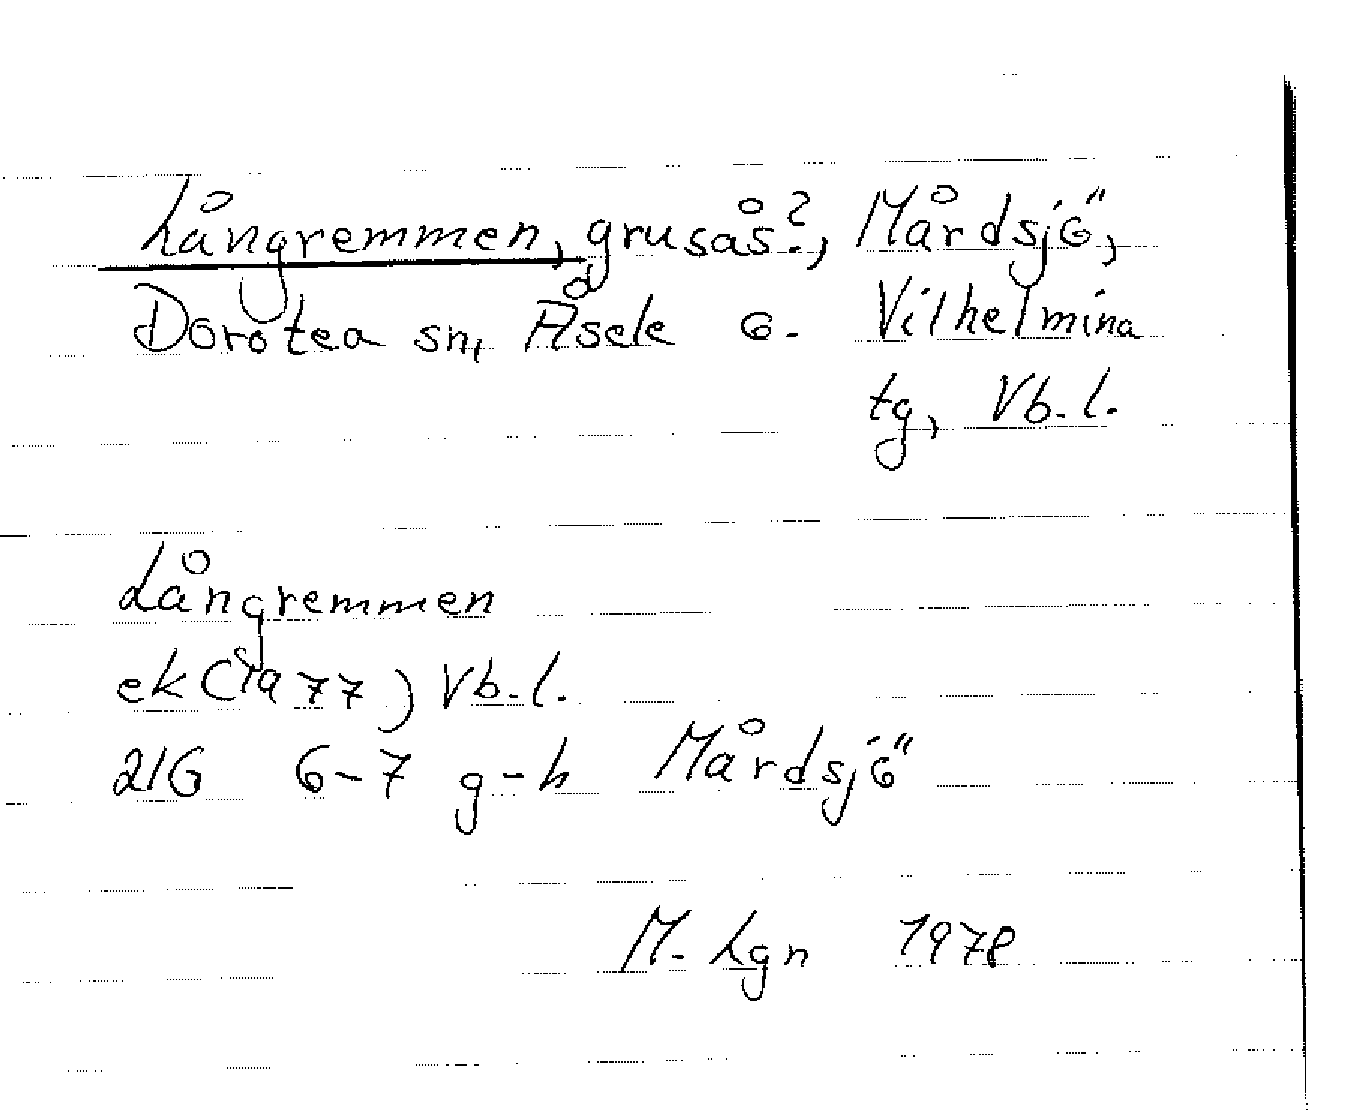 Långremmen, grusås?, Mårdsjö,
Dorotea sn, Åsele o. Vilhelmina
tg, Vb. l.
Långremmen
ek 77) Vb. l.
21G 6-7 g-h Mårdsjö
M. Lgn 1978